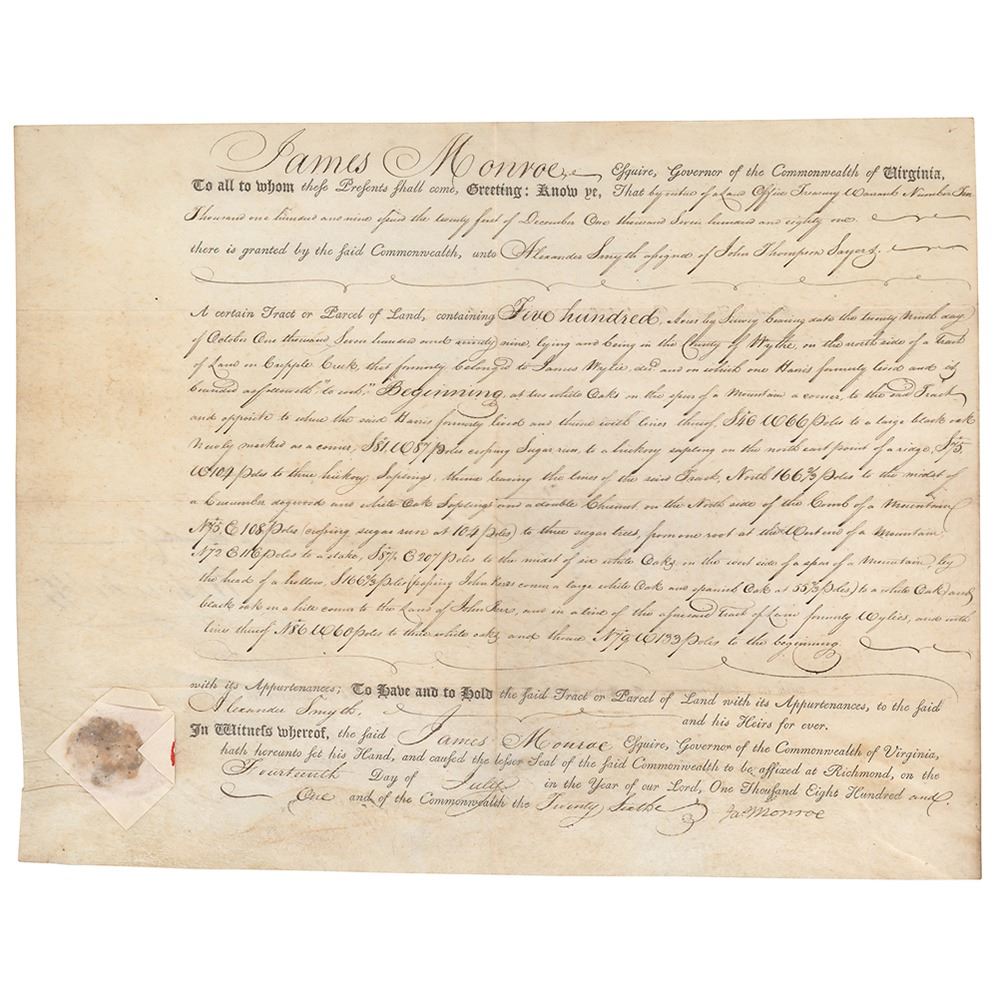 James Monroe, Esquire, Governor of the Commonwealth of Virginia,
To all to whom these Presents shall come, Greeting: Know ye, That by virtue of a Land Office Treasury Warrant Number Ten
Thousand one hundred and nine issued the twenty first of December One thousand Seven hundred and eighty one
there is granted by the said Commonwealth, unto Alexander Smyth assignee of John Thompson Sayers.
A certain Tract or Parcel of Land, containing Five hundred Acres by Survey bearing date the twenty Ninth day
of October One thousand Seven hundred and ninety nine, lying and being in the County of Wythe, on the north side of a Tract
of Land on Cripple Creek, that formerly belong'd to James Wylie decd and on which one Harris formerly lived and is
bounded as followeth "to wit," Beginning at two white Oaks on the spur of a Mountain a corner, to the said Tract
and opposite to where the said Harris formerly lived and thence with lines thereof, S46 W66 Poles to a large black oak
Newly marked as a corner, S81 W87 Poles crossing Sugar run, to a hickory sapling on the north east point of a ridge, S75
W104 Poles to three hickory Saplings, thence leaving the lines of the said Tract, North 166 2/3 Poles to the midst of
a Cucumber dogwood and white Oak Saplings and a double Chesnut on the North side of the Comb of a Mountain
N75 E 108 Poles (crossing sugar run at 104 Poles) to three sugar trees, from one root at the West end of a Mountain,
N72 E 116 Poles to a stake, S87 1/2 E 207 Poles to the midst of six white Oaks on the west side of a spur of a Mountain, by
the head of a hollow, S 166 2/3 Poles (passing John Kers corner a large white Oak and spanish Oak at 55 2/3 Poles) to a white Oak and
black oak in a line corner to the Land of John Kerr, and in a line of the aforesaid Tract of Land formerly Wylies, and with
lines thereof N86 W60 Poles to three white oaks and thence N79 W133 Poles to the beginning
with its Appurtenances; To Have and to Hold the said Tract or Parcel of Land with its Appurtenances, to the said
Alexander Smyth, and his Heirs for ever.
In Witness whereof, the said James Monroe Esquire, Governor of the Commonwealth of Virginia,
hath hereunto set his Hand, and caused the lesser Seal of the said Commonwealth to be affixed at Richmond, on the
Fourteenth Day of July in the Year of our Lord, One Thousand Eight Hundred and
One and of the Commonwealth the Twenty Sixth
Jas Monroe